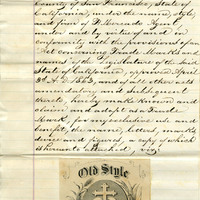 County of San Francisco, State of
California, under the name, style
and firm of P. Mercado Agent,
under and by virtue of and in
conformity with the provisions of an
Act concerning Trade Marks and
names of the Legislature of the said
State of California, approved April
3d A.D. 1863, and of all other acts
amendatory and subsequent
thereto, hereby make known and
claim and adopt as a Trade
Mark, for my exclusive use and
benefit, the name, letters, marks
device and figures, a copy of which
is hereunto attached, viz:
Old Style